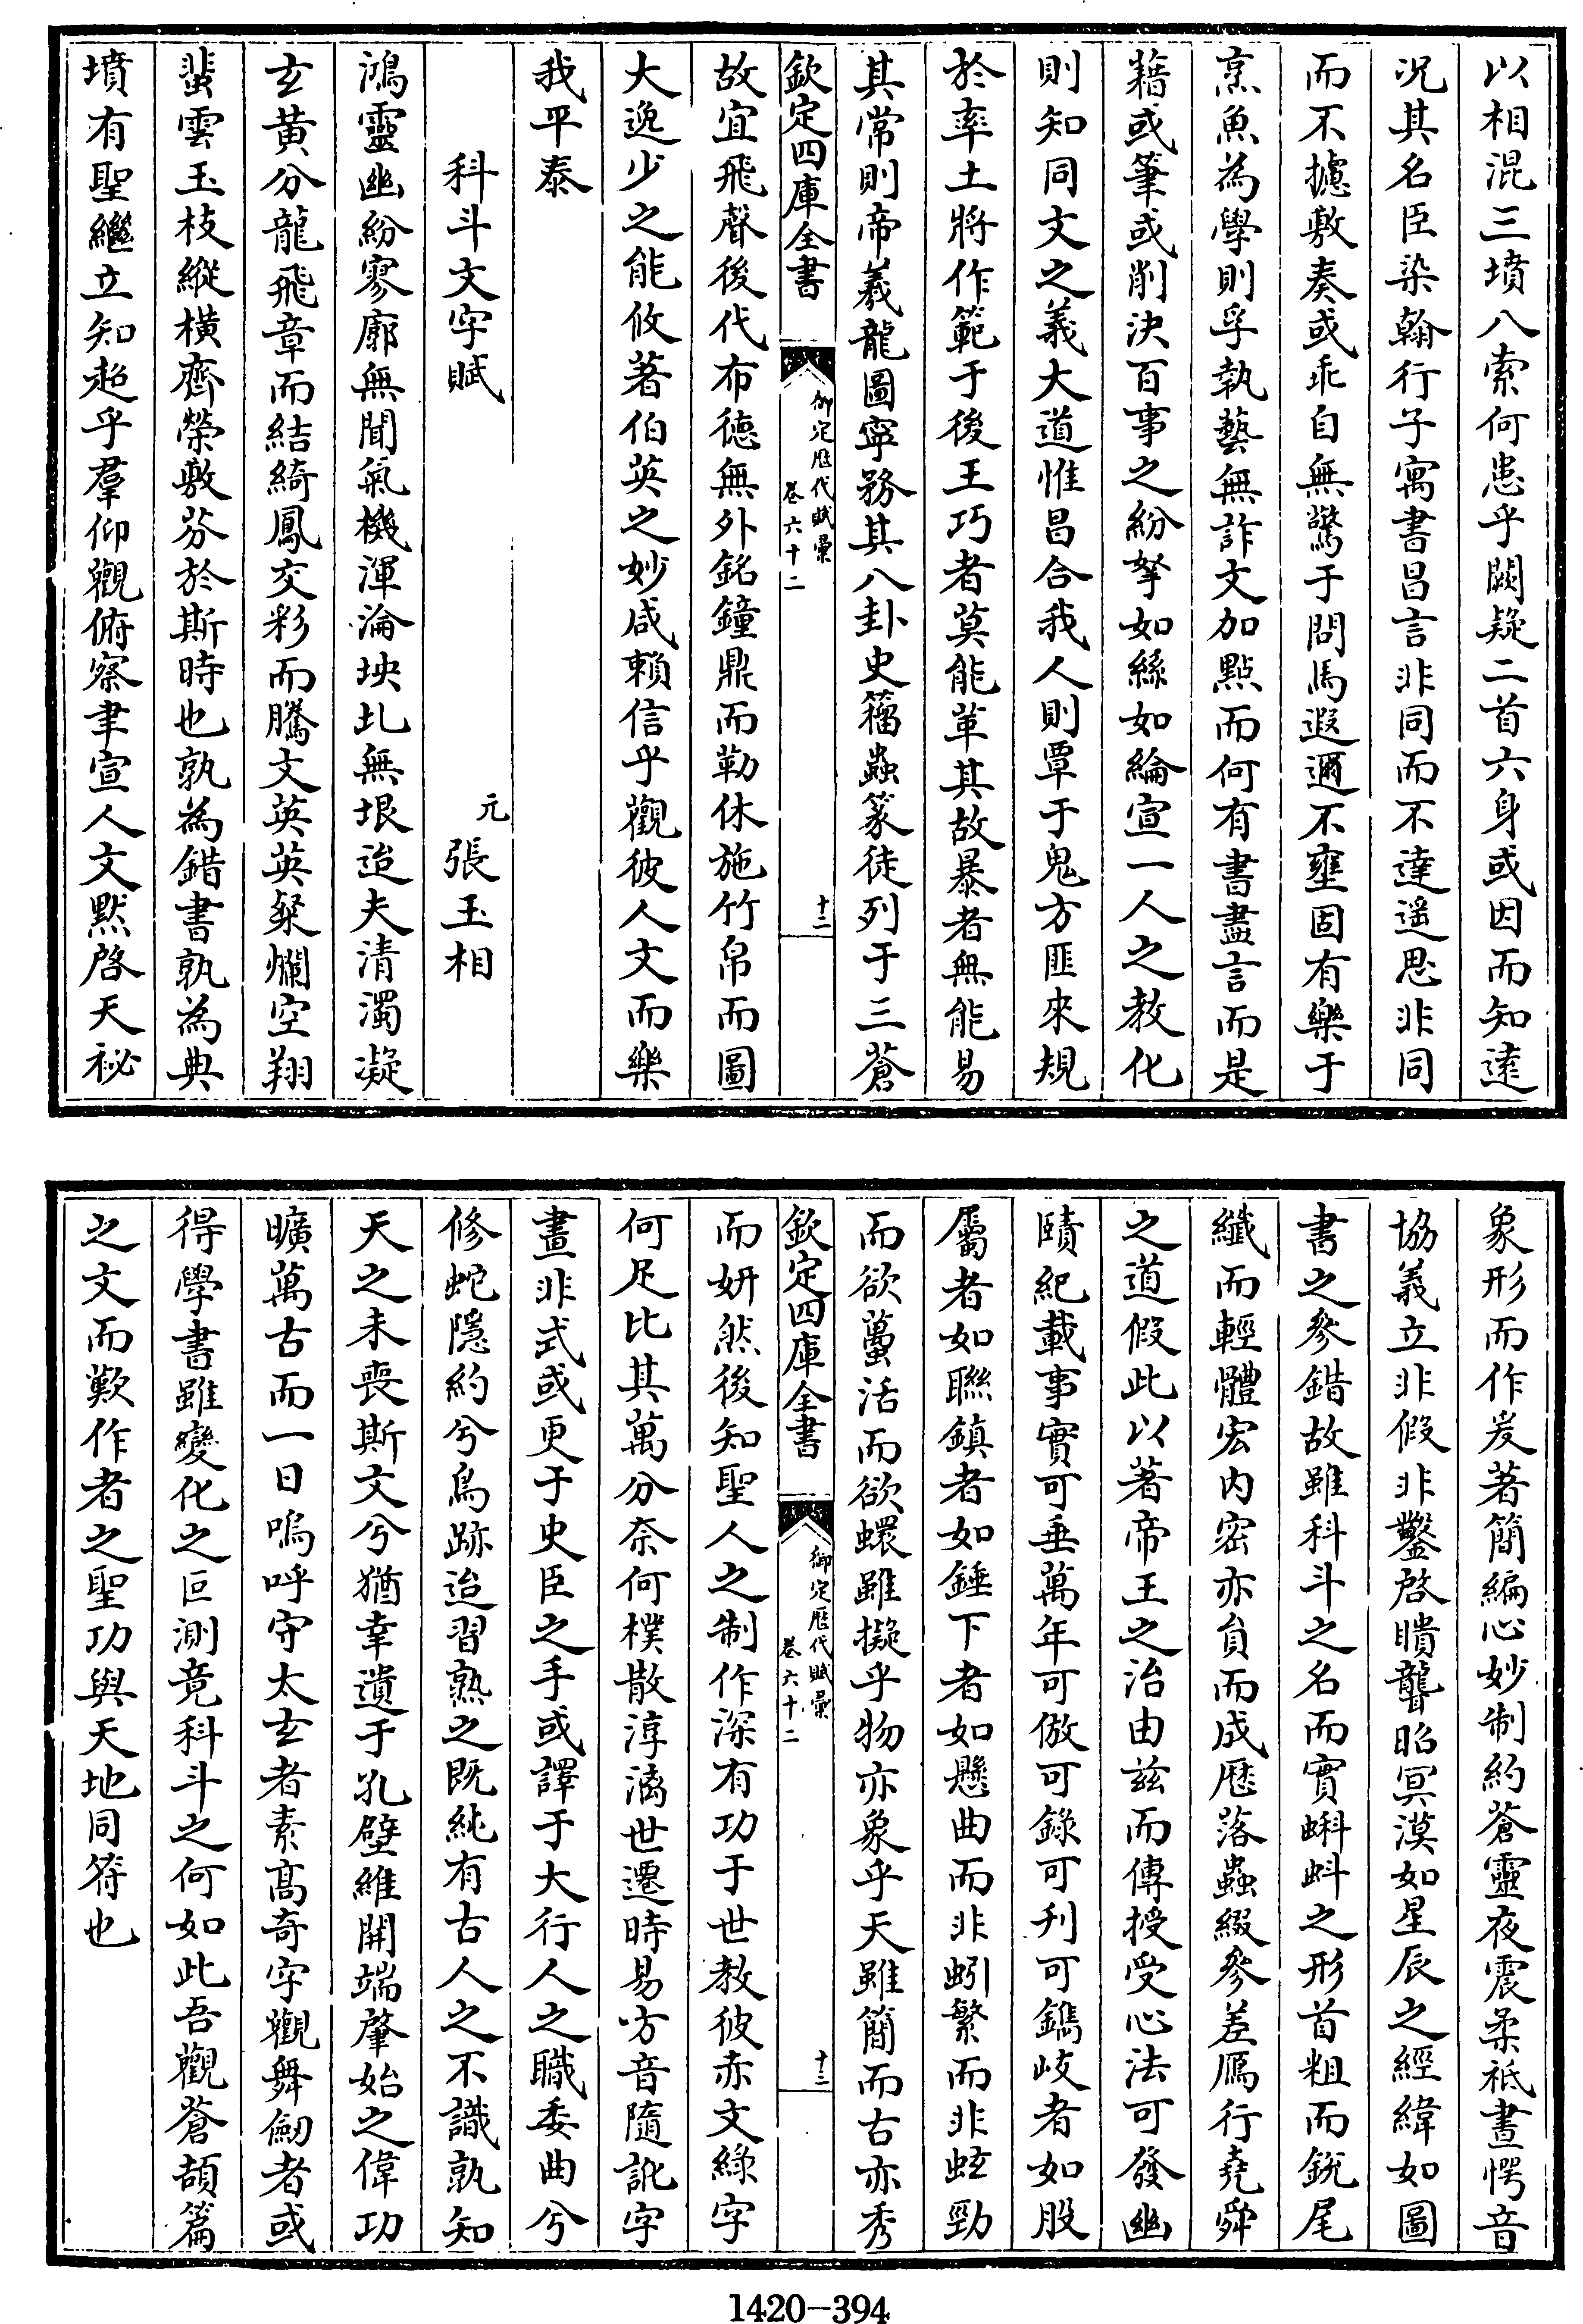 以相混三墳八索何患乎闕疑二首六身或因而知遠
況其名臣染翰行子寓書昌言非同而不達遥思非同
而不攄敷奏或乖自無驚于問馬遐邇不壅固有樂于
烹魚為學則孚執藝無詐文加點而何有書盡言而是
藉或筆或削決百事之紛拏如絲如綸宣一人之教化
則知同文之義大道惟昌合我人則覃于鬼方匪來規
於率土將作範于後王巧者莫能革其故暴者無能易
其常則帝羲龍圖寧務其八卦史籀蟲篆徒列于三蒼
欽定四庫全書
御定歴代賦彙
卷六十二
十二
故宜飛聲後代布徳無外銘鐘鼎而勒休施竹帛而圖
大逸少之能攸著伯英之妙咸賴信乎觀彼人文而樂
我平泰
科斗文字賦
元張玉相
鴻靈幽紛寥廓無聞氣機渾淪坱圠無垠迨夫清濁凝
玄黄分龍飛章而結綺鳳交彩而騰文英英粲爛空翔
蜚雲玉枝縱橫齊榮敷芬於斯時也孰為錯書孰為典
墳有聖繼立知超乎羣仰觀俯察聿宣人文黙啓天祕
象形而作爰著簡編心妙制約蒼靈夜震柔祇晝愕音
協義立非假非鑿啓聵聾昭冥漠如星辰之經緯如圖
書之參錯故雖科斗之名而實蝌蚪之形首粗而銳尾
纖而輕體宏内密亦貟而成歴落蟲綴參差鴈行堯舜
之道假此以著帝王之治由兹而傳授受心法可發幽
賾紀載事實可垂萬年可倣可錄可刋可鐫岐者如股
屬者如聯鎮者如錘下者如懸曲而非蚓繁而非蚿勁
而欲蠆活而欲蠉雖擬乎物亦象乎天雖簡而古亦秀
欽定四庫全書
御定歴代賦彙
卷六十二
十三
而妍然後知聖人之制作深有功于世教彼赤文綠字
何足比其萬分奈何樸散淳漓世遷時易方音隨訛字
畫非式或更于史臣之手或譯于大行人之職委曲兮
修蛇隱約兮鳥跡迨習熟之既純有古人之不識孰知
天之未喪斯文兮猶幸遺于孔壁維開端肇始之偉功
曠萬古而一日嗚呼守太玄者素髙竒字觀舞劒者或
得學書雖變化之叵測竟科斗之何如此吾觀蒼頡篇
之文而歎作者之聖功與天地同符也
1420-394